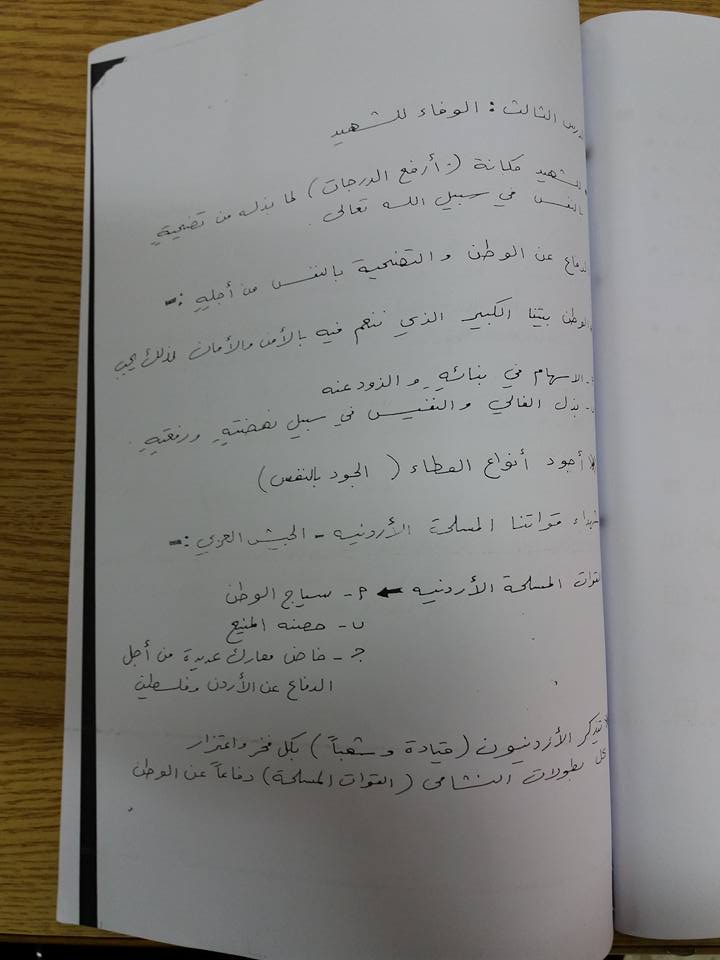 الدرس الثالث : الوفاء للشهيد
للشهيد مكانة (: أرفع الدرجات) لما بذله من تضحيةٍ
بالنفس في سبيل الله تعالى .
الدفاع عن الوطن والتضحية بالنفس من أجلهِ :-
الوطن بيتنا الكبير الذي ننعم فيه بالأمن والأمان لذلك يجب
الاسهام في بنائهِ والزود عنه
ب- بذل الغالي والنفيس في سبيل نهضتهِ ورفعتهِ .
أجود أنواع العطاء ( الجود بالنفس )
شهداء قواتنا المسلحة الأردنيه - الجيش العربي :-
القوات المسلحة الأردنيه ← أ- سياج الوطن
ب- حصنه المنيع
ج- خاض معارك عديدة من أجل
الدفاع عن الأردن وفلسطين
يتذكر الأردنيون ( قيادة وشعباً ) بكل فخر واعتزاز
كل بطولات النشامى ( القوات المسلحة ) دفاعاً عن الوطن .